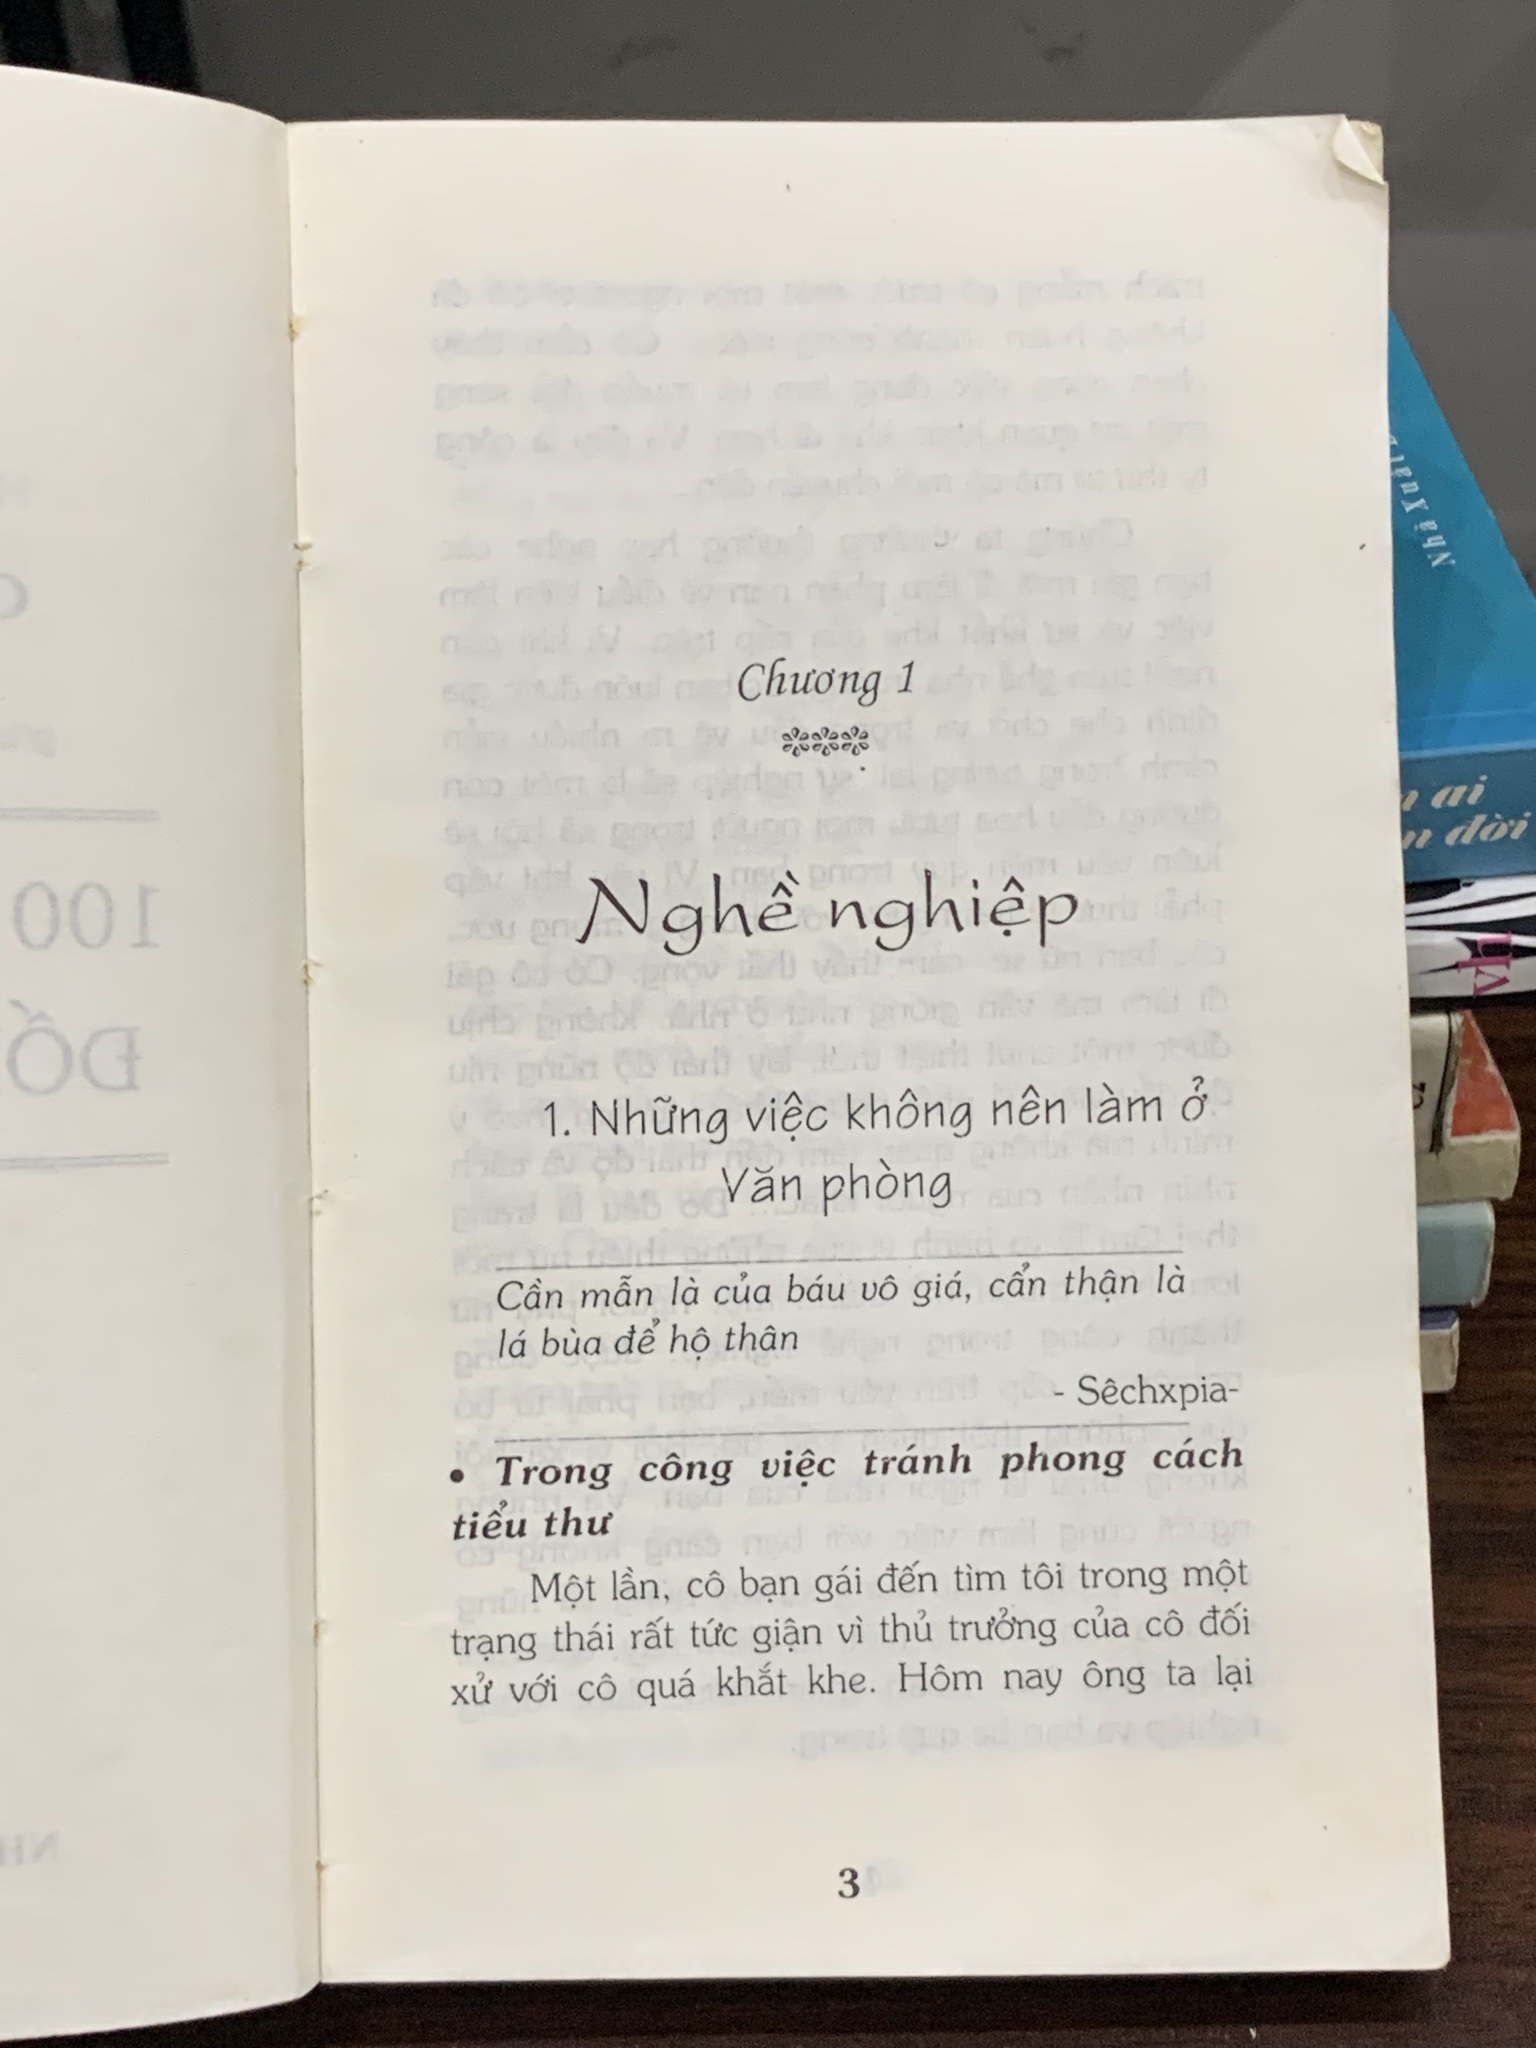 Chương 1
Nghề nghiệp
1. Những việc không nên làm ở
Văn phòng
Cần mẫn là của báu vô giá, cẩn thận là
lá bùa để hộ thân
- Sêchxpia-
• Trong công việc tránh phong cách
tiểu thư
Một lần, cô bạn gái đến tìm tôi trong một
trạng thái rất tức giận vì thủ trưởng của cô đối
xử với cô quá khắt khe. Hôm nay ông ta lại
3
Nhà Xuất
ai
đời
vh